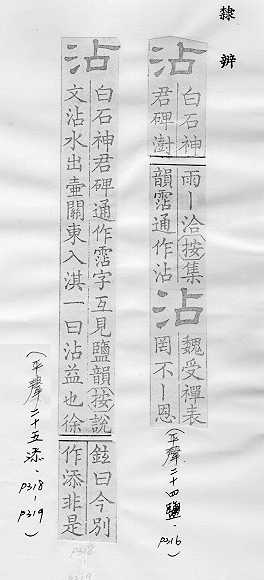 隸辨
沾
白石神
君碑澍
雨｜洽按集
韻霑通作沾
沾
魏受禪表
罔不｜恩
(平聲二十四鹽．P316)
沾
白石神君碑通作霑字互見鹽韻按說
文沾水出壺關東入淇一曰沾益也徐
鉉曰今別
作添非是
(平聲二十五添．P318-P319)
P318
P319